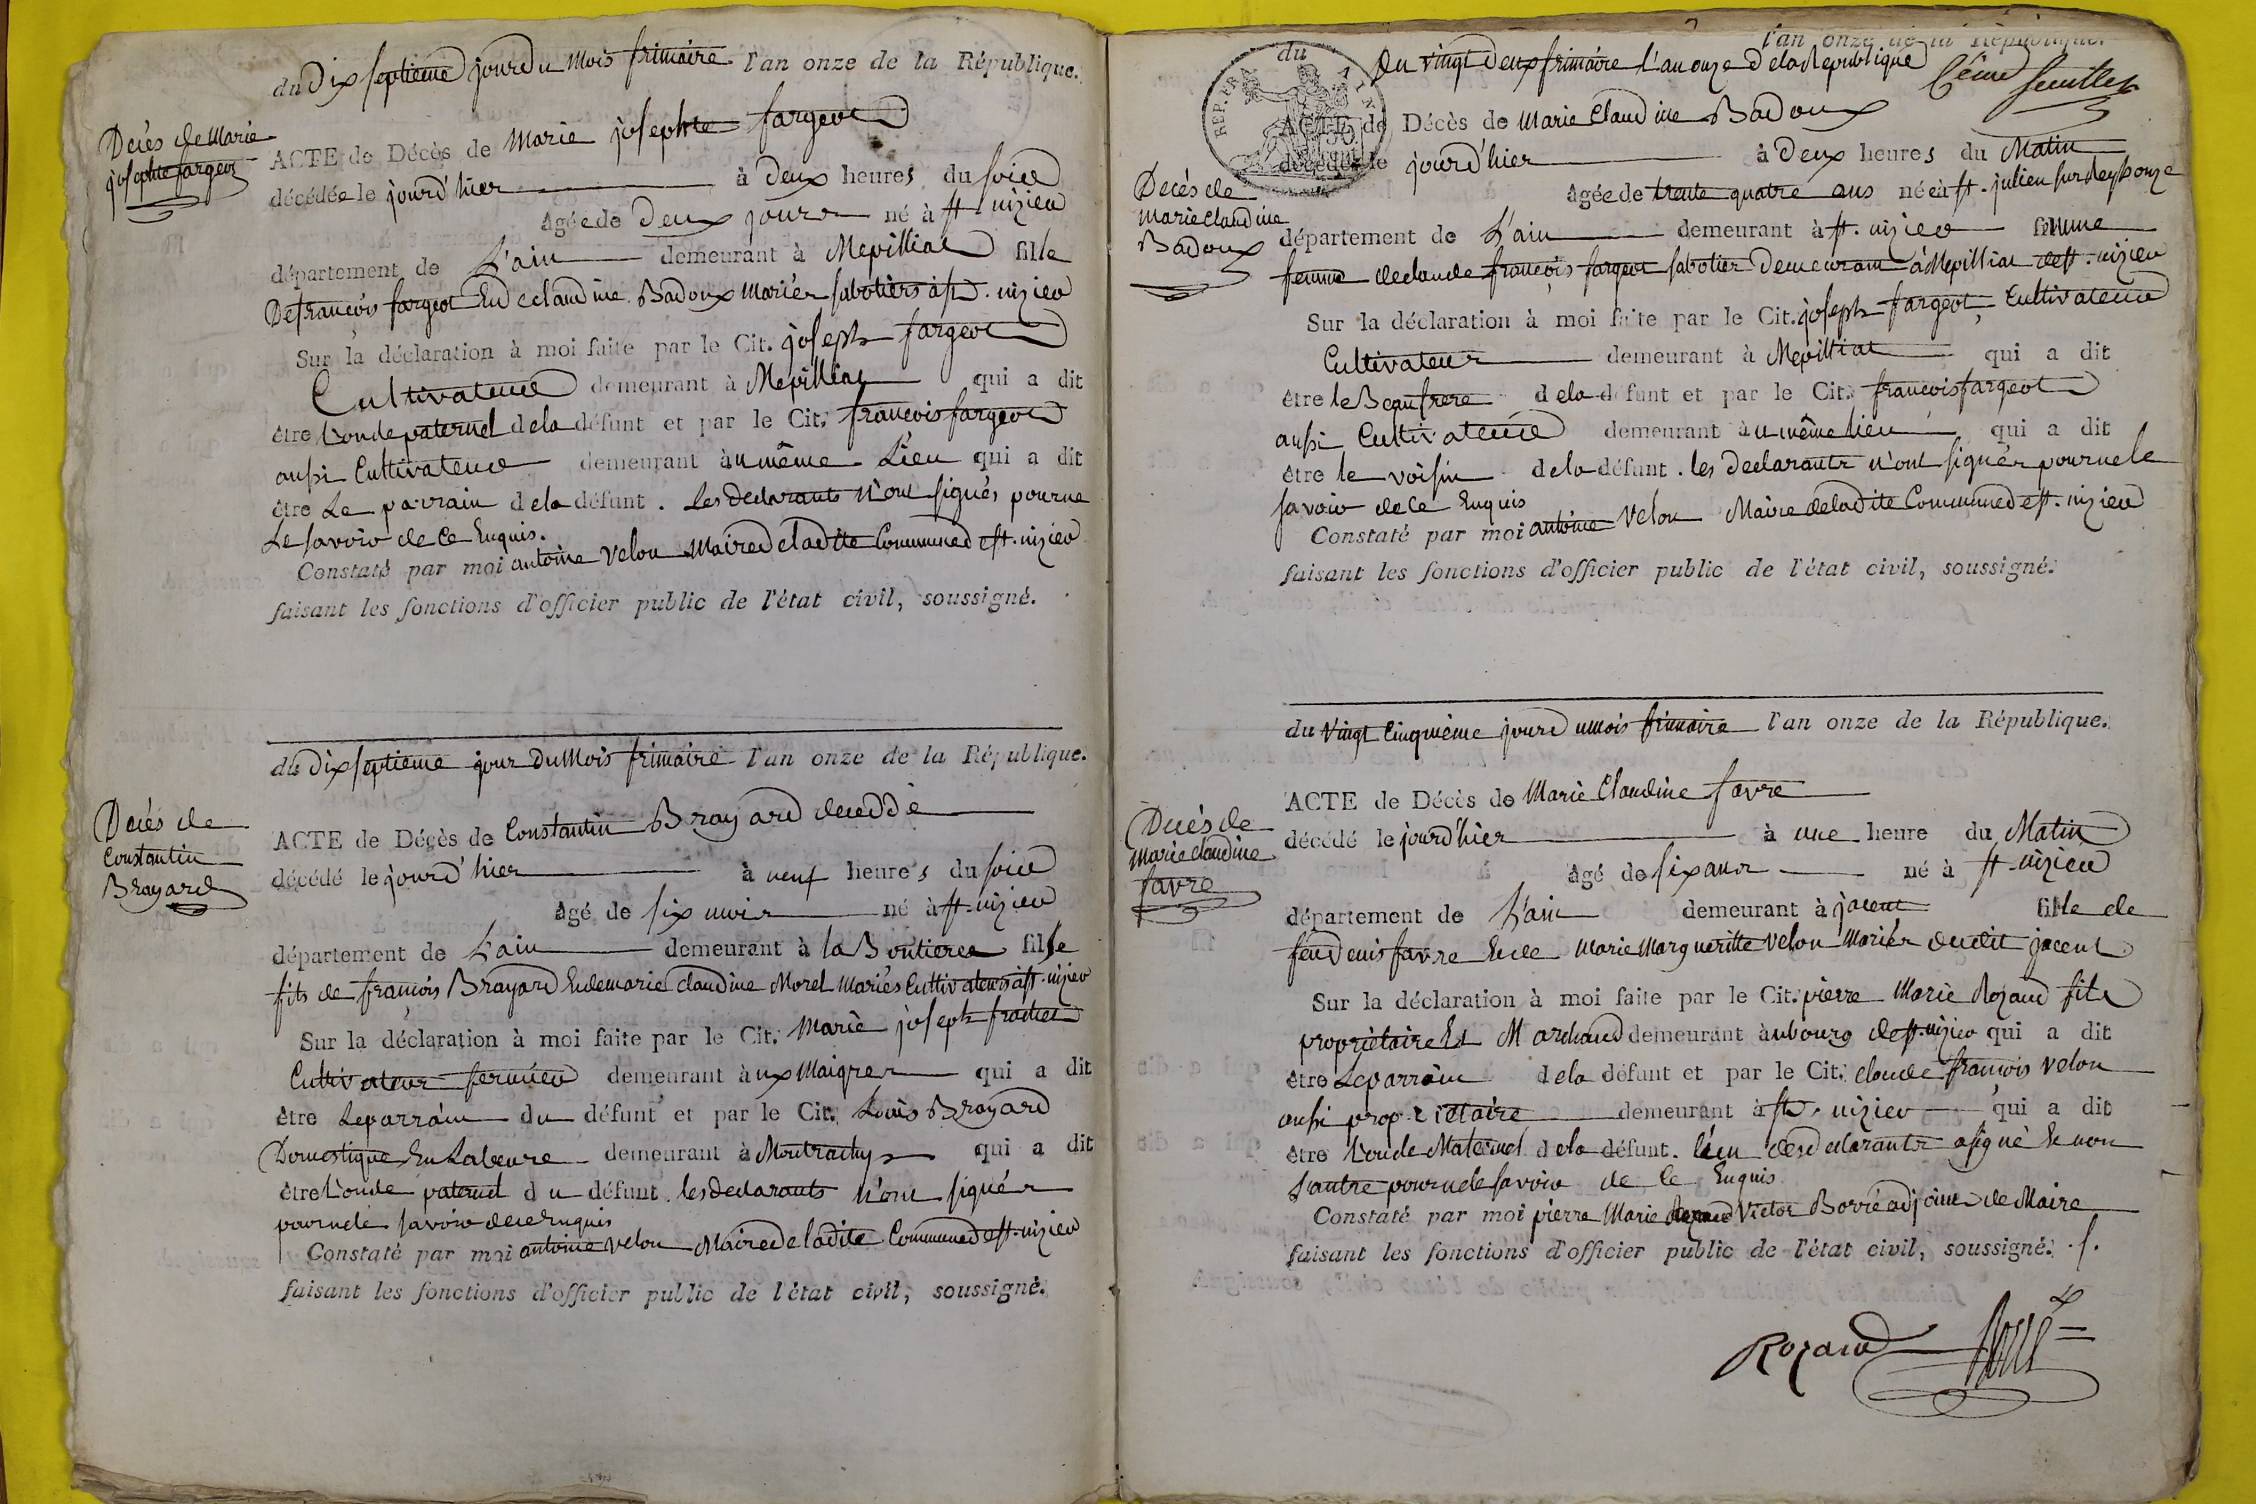 du Dix septieme jour du mois frimaire l'an onze de la République.
Decés de Marie
josephte fargeot
ACTE de Décès de Marie josephte fargeot
décédée le jourd'hier à deux heures du soire
agée de Deux jours né à st. nizier
département de L'ain demeurant à Mépilliat fille
De francois fargeot Et de claudine Badoux mariés sabotiers à st. nizier
Sur la déclaration à moi faite par le Cit. joseph fargeot
Cultivateur demeurant à Mépilliat qui a dit
être l'oncle paternel de la défunt et par le Cit. francois fargeot
aussi Cultivateur demeurant au même Lieu qui a dit
être Le parrain de la défunt. Les declarants n'ont signés pour ne
Le savoir de ce Enquis.
Constaté par moi antoine Velon Maire de ladite Commune de st. nizier
faisant les fonctions d'officier public de l'état civil, soussigné.
du dix septieme jour du Mois frimaire l'an onze de la République.
Decés de
Constantin
Brayard
ACTE de Décès de Constantin Brayard decedde
décédé le jourd'hier à neuf heures du soire
âgé de six mois né à st. nizier
département de L'ain demeurant à la Boutiere fille
fils de francois Brayard Et de marie claudine Morel mariés Cultivateurs à st. nizier
Sur la déclaration à moi faite par le Cit. Marie joseph
Cultivateur fermier demeurant aux Maigres qui a dit
être Le parrain du défunt et par le Cit. Louis Brayard
Domestique En Labeure demeurant à Montrachy qui a dit
être L'oncle paternel du défunt. les declarants n'ont signés
pour ne le savoir de ce enquis
Constaté par moi antoine Velon Maire de ladite Commune de st. nizier
faisant les fonctions d'officier public de l'état civil, soussigné.
l'an onze de la République.
du Du vingt Deux frimaire L'an onze de la Republique
6eme feuillet
REP. FRA.
ACTE de Décès de Marie Claudine Badoux
décédée le jourd'hier à Deux heures du Matin
Decés de
Marie Claudine
Badoux
agée de trente quatre ans née à st. julien sur Reyssouze
département de L'ain demeurant à st. nizier femme
femme de claude francois fargeot sabotier Demeurant à Mépilliat de st. nizier
Sur la déclaration à moi faite par le Cit. joseph fargeot, Cultivateur
Cultivateur demeurant à Mépilliat qui a dit
être le Beaufrere de la défunt et par le Cit. francois fargeot
aussi Cultivateur demeurant au même lieu qui a dit
être le voisin de la défunt. les declarants n'ont signés pour ne le
savoir de ce Enquis
Constaté par moi antoine Velon Maire de ladite Commune de st. nizier
faisant les fonctions d'officier public de l'état civil, soussigné.
du Vingt Cinquieme jour du mois frimaire l'an onze de la République.
Decés de
Marie claudine
favre
ACTE de Décès de Marie Claudine favre
décédé le jourd'hier à une heure du Matin
âgé de six ans né à st. nizier
département de L'ain demeurant à jacent fille de
feu Denis favre Et de Marie Margueritte Velon Mariés dudit jacent
Sur la déclaration à moi faite par le Cit. pierre Marie Rozand fils
propriétaire Et Marchand demeurant au bourg de st. nizier qui a dit
être Le parrain de la défunt et par le Cit. claude francois Velon
aussi propriétaire demeurant à st. nizier qui a dit
être L'oncle Maternel de la défunt. l'un des declarants a signé Et non
L'autre pour ne le savoir de ce Enquis
Constaté par moi pierre Marie Victor Borré adjoint de Maire
faisant les fonctions d'officier public de l'état civil, soussigné.
Rozand Borré